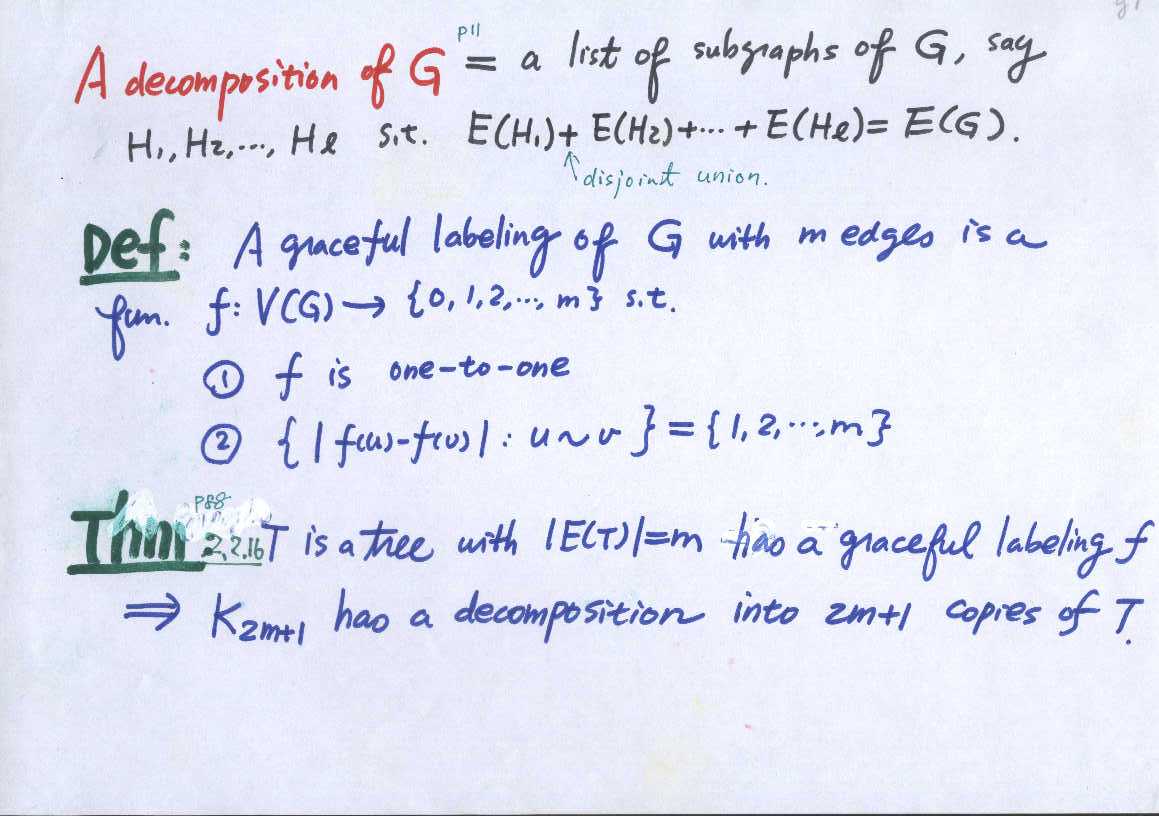 A decomposition of G = a list of subgraphs of G, say
p11
H1, H2, ..., Hℓ s.t. E(H1)+E(H2)+...+E(Hℓ)=E(G).
↑disjoint union.
Def: A graceful labeling of G with m edges is a
fun. f: V(G) → {0,1,2,...,m} s.t.
① f is one-to-one
② {|f(u)-f(v)| : u~v} = {1,2,...,m}
P88
Thm 2.2.16 T is a tree with |E(T)|=m has a graceful labeling f
⇒ K2m+1 has a decomposition into 2m+1 copies of T.